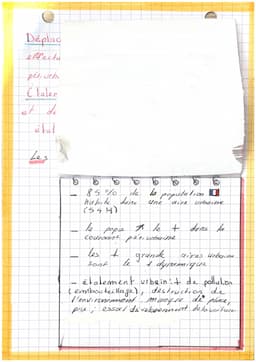 Déplac
effectu
péri urb
(Étaler
et de
état
Les
- 85 % de la population 🇫🇷
habite dans une aire urbaine
(54 M)
- la popu ↗ le + dans la
couronne périurbaine
- les + grande aires urbaine
sont le + dynamique
- étalement urbain : + de pollution
(embouteillage), destruction de
l'environnement, manque de place,
; essor